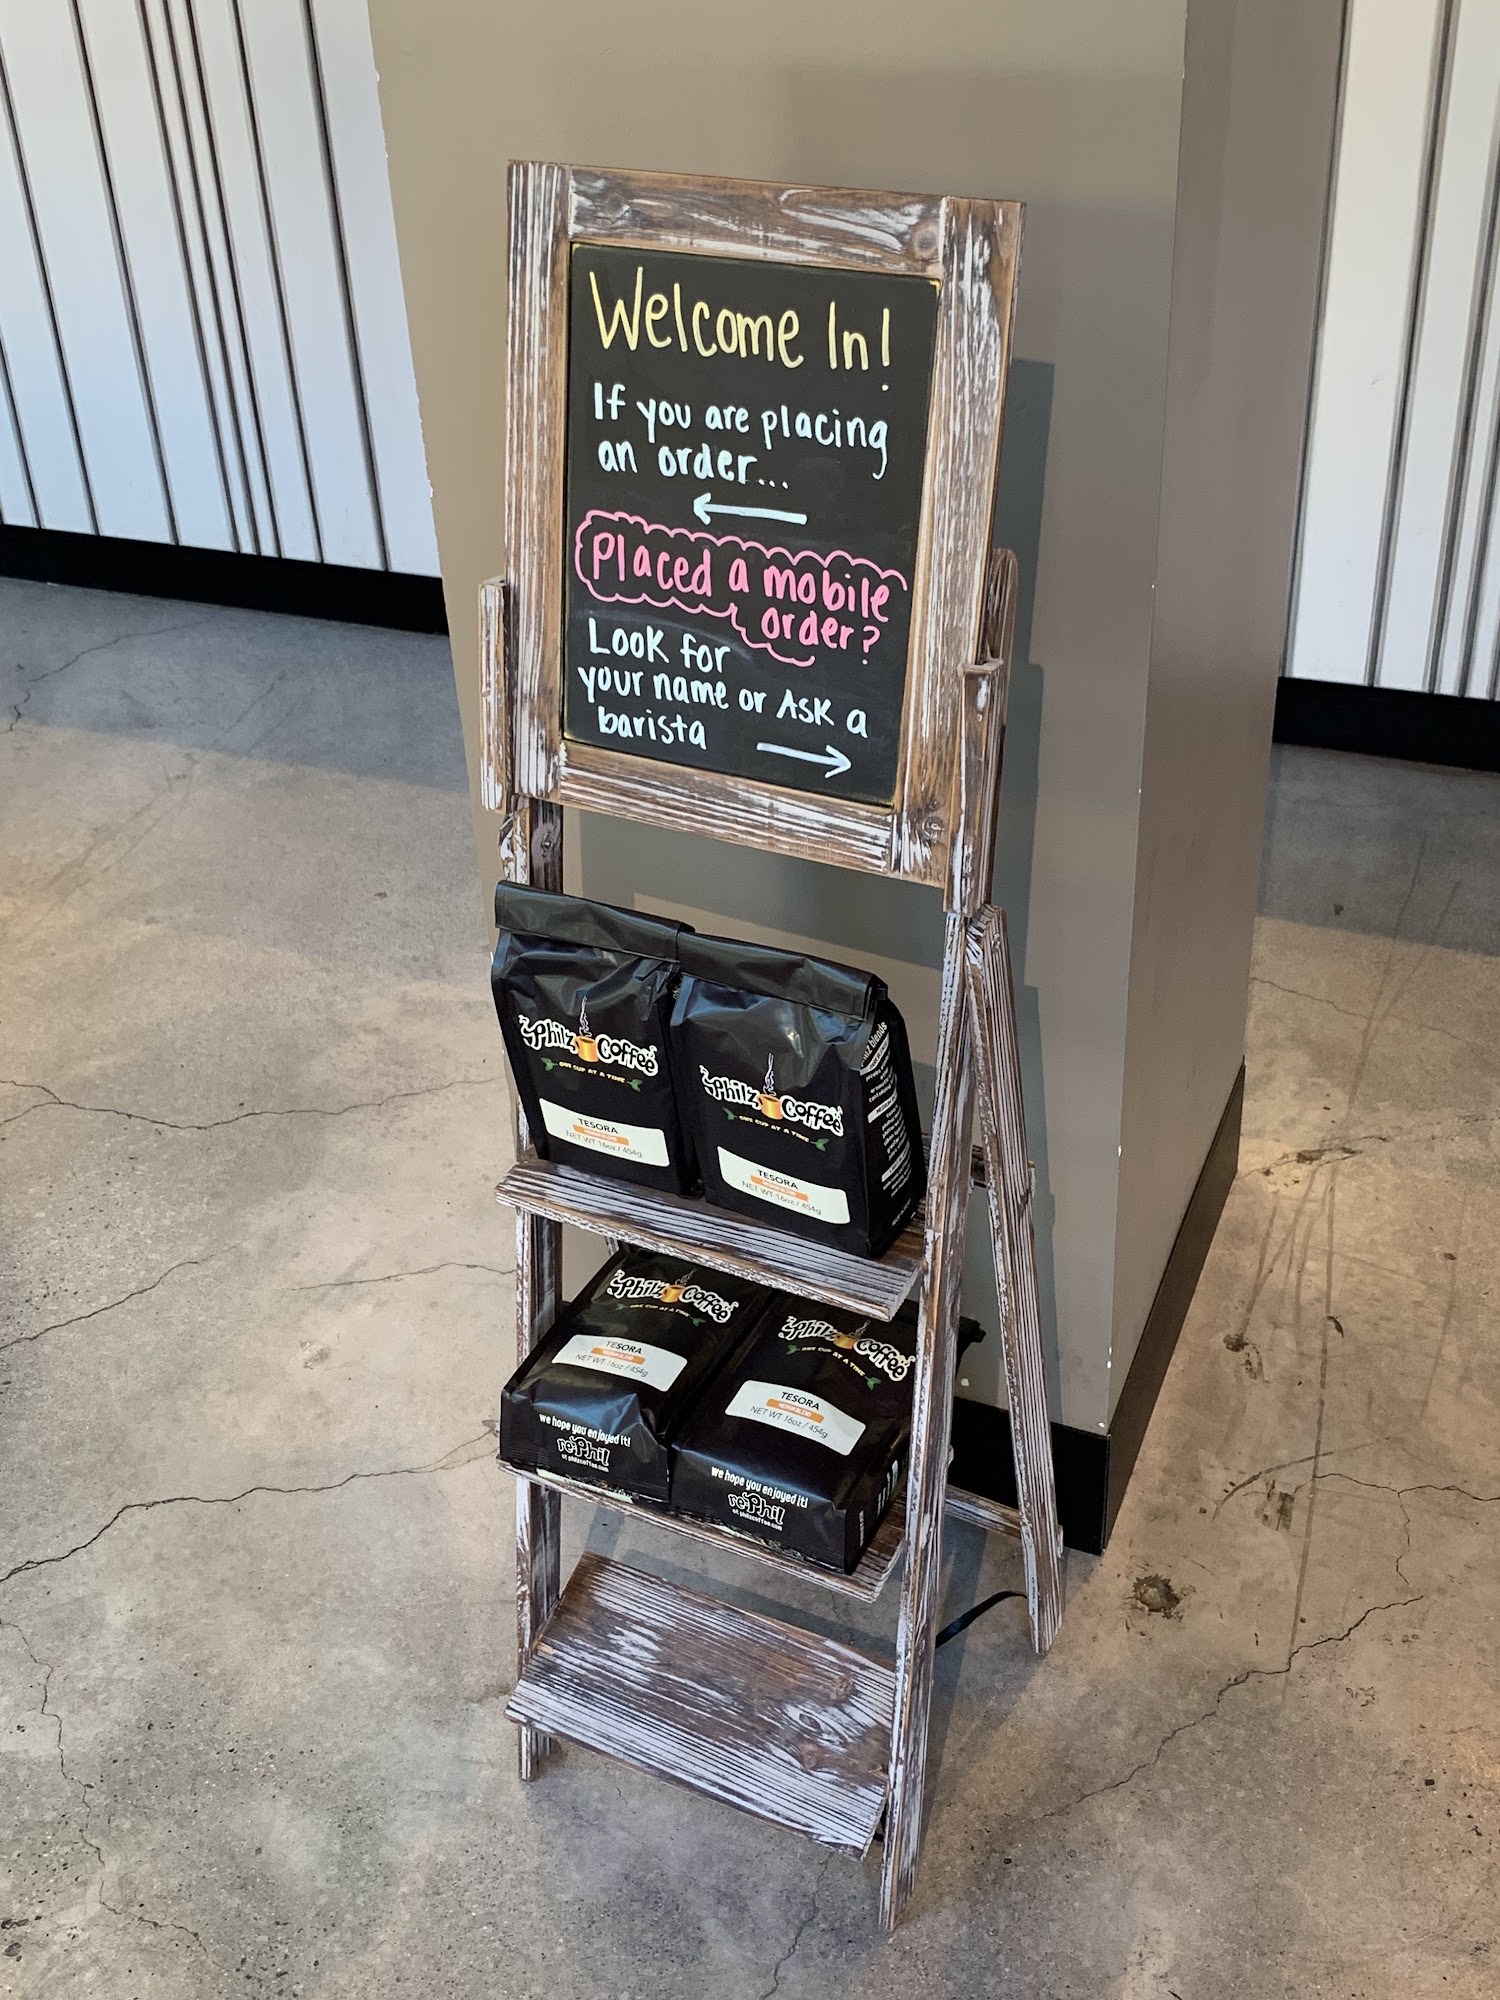 Welcome In!
If you are placing
an order...
Placed a mobile
order?
Look for
your name or Ask a
barista
Philz Coffee
ONE CUP AT A TIME
TESORA
MEDIUM BLEND
NET WT 16oz / 454g
Philz Coffee
ONE CUP AT A TIME
TESORA
MEDIUM BLEND
NET WT 16oz / 454g
Philz Coffee
ONE CUP AT A TIME
TESORA
MEDIUM BLEND
NET WT 16oz / 454g
we hope you enjoyed it!
re-Phil
at philzcoffee.com
Philz Coffee
ONE CUP AT A TIME
TESORA
MEDIUM BLEND
NET WT 16oz / 454g
we hope you enjoyed it!
re-Phil
at philzcoffee.com